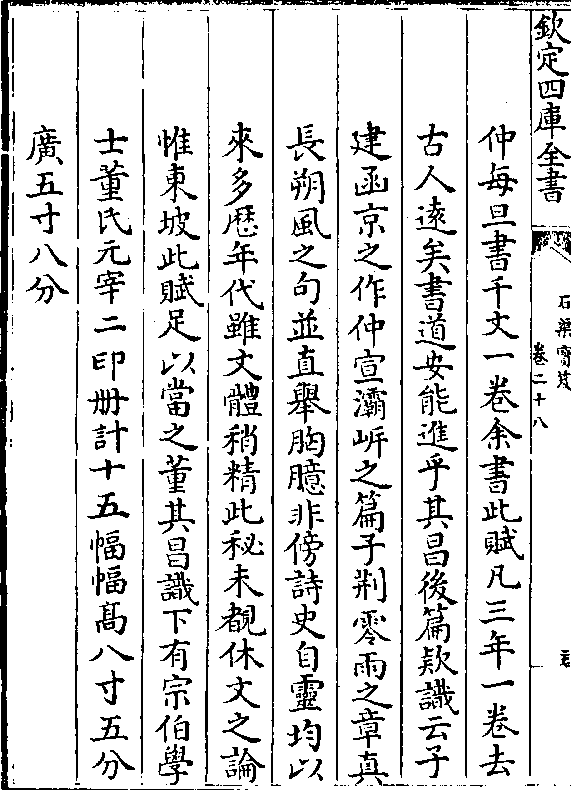 欽定四庫全書
石渠寶笈
卷二十八
仲每旦書千文一卷余書此賦凡三年一卷去
古人逺矣書道安能進乎其昌後篇欵識云子
建函京之作仲宣灞岸之篇子荆零雨之章真
長朔風之句並直舉胸臆非傍詩史自靈均以
來多歴年代雖文體稍精此秘未覩休文之論
惟東坡此賦足以當之董其昌識下有宗伯學
士董氏元宰二印册計十五幅幅髙八寸五分
廣五寸八分